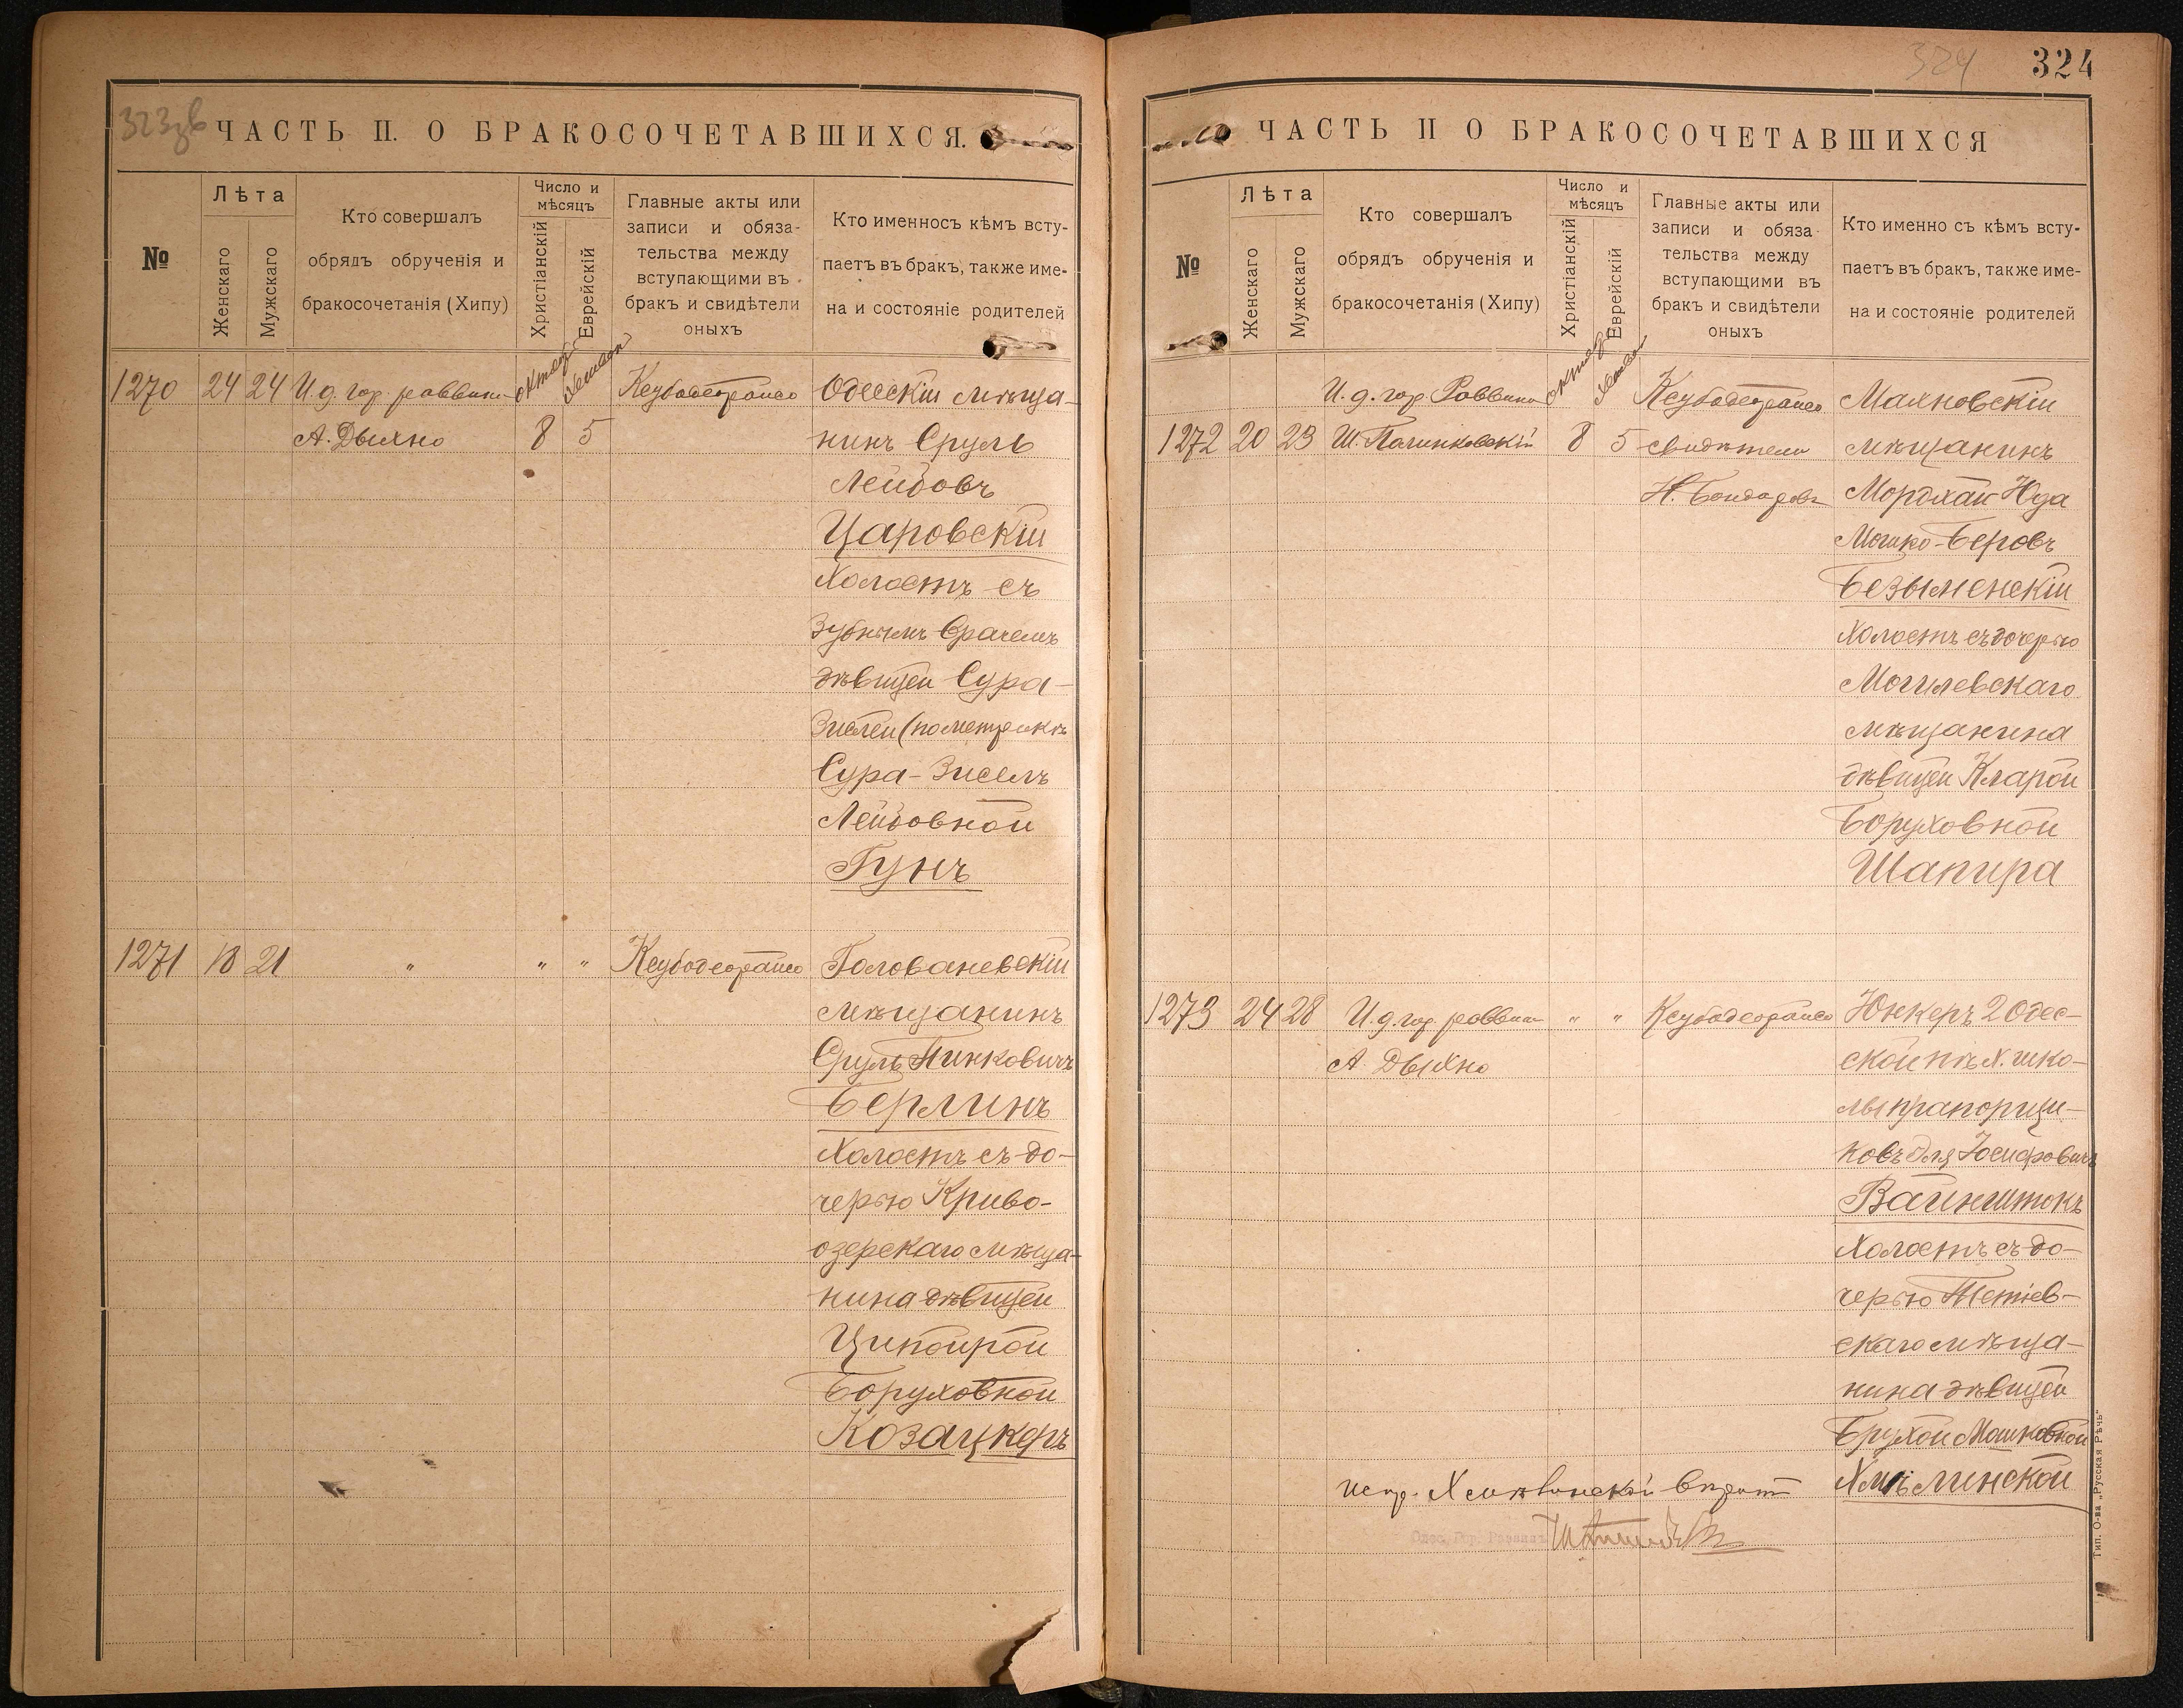 323зв
ЧАСТЬ II. О БРАКОСОЧЕТАВШИХСЯ.
№
Лѣта
Женскаго
Мужскаго
Кто совершалъ
обрядъ обрученія и
бракосочетанія (Хипу)
Число и
мѣсяцъ
Христіанскій
Еврейскій
Главные акты или
записи и обяза-
тельства между
вступающими въ
бракъ и свидѣтели
оныхъ
Кто именносъ кѣмъ всту-
паетъ въ бракъ, также име-
на и состояніе родителей
1270 24 24 И.д. гор. раввина Одесскій мѣща-
А. Дыхно 8 5 нинъ Сруль
Лейбовъ
Царовскій
Холостъ съ
Зубнымъ врачемъ
дѣвицей Сура-
Зислей (по метрикѣ
Сура-Зиселъ
Лейбовной
Гунъ
1271 18 21 " " " Голованевскій
мѣщанинъ
Сруль Пинковичъ
Берлинъ
Холостъ съ до-
черью Криво-
озерскаго мѣща-
нина дѣвицей
Ципойрой
Боруховной
Козацкеръ
324
324
ЧАСТЬ II О БРАКОСОЧЕТАВШИХСЯ
№
Лѣта
Женскаго
Мужскаго
Кто совершалъ
обрядъ обрученія и
бракосочетанія (Хипу)
Число и
мѣсяцъ
Христіанскій
Еврейскій
Главные акты или
записи и обяза-
тельства между
вступающими въ
бракъ и свидѣтели
оныхъ
Кто именно съ кѣмъ всту-
паетъ въ бракъ, также име-
на и состояніе родителей
И.д. гор. Раввина Маяновскій
1272 20 23 Ш. Полинковскій 8 5 свидѣтели мѣщанинъ
Н. Бондаревъ Мордхай Юда
Мошко-Беровъ
Безыменскій
Холостъ съ дочерью
Могилевскаго
мѣщанина
дѣвицей Кларой
Боруховной
Шапира
1273 24 28 И.д. гор. раввина " " Юнкеръ 2 Одес-
А. Дыхно ской пѣх. шко-
лы прапорщи-
ковъ Эля Іосифовичъ
Вайнштокъ
Холостъ съ до-
черью Тетіев-
скаго мѣща-
нина дѣвицей
Брухой Мошковной
Хмѣлинской
Тип. О-ва „Русская Рѣчь“